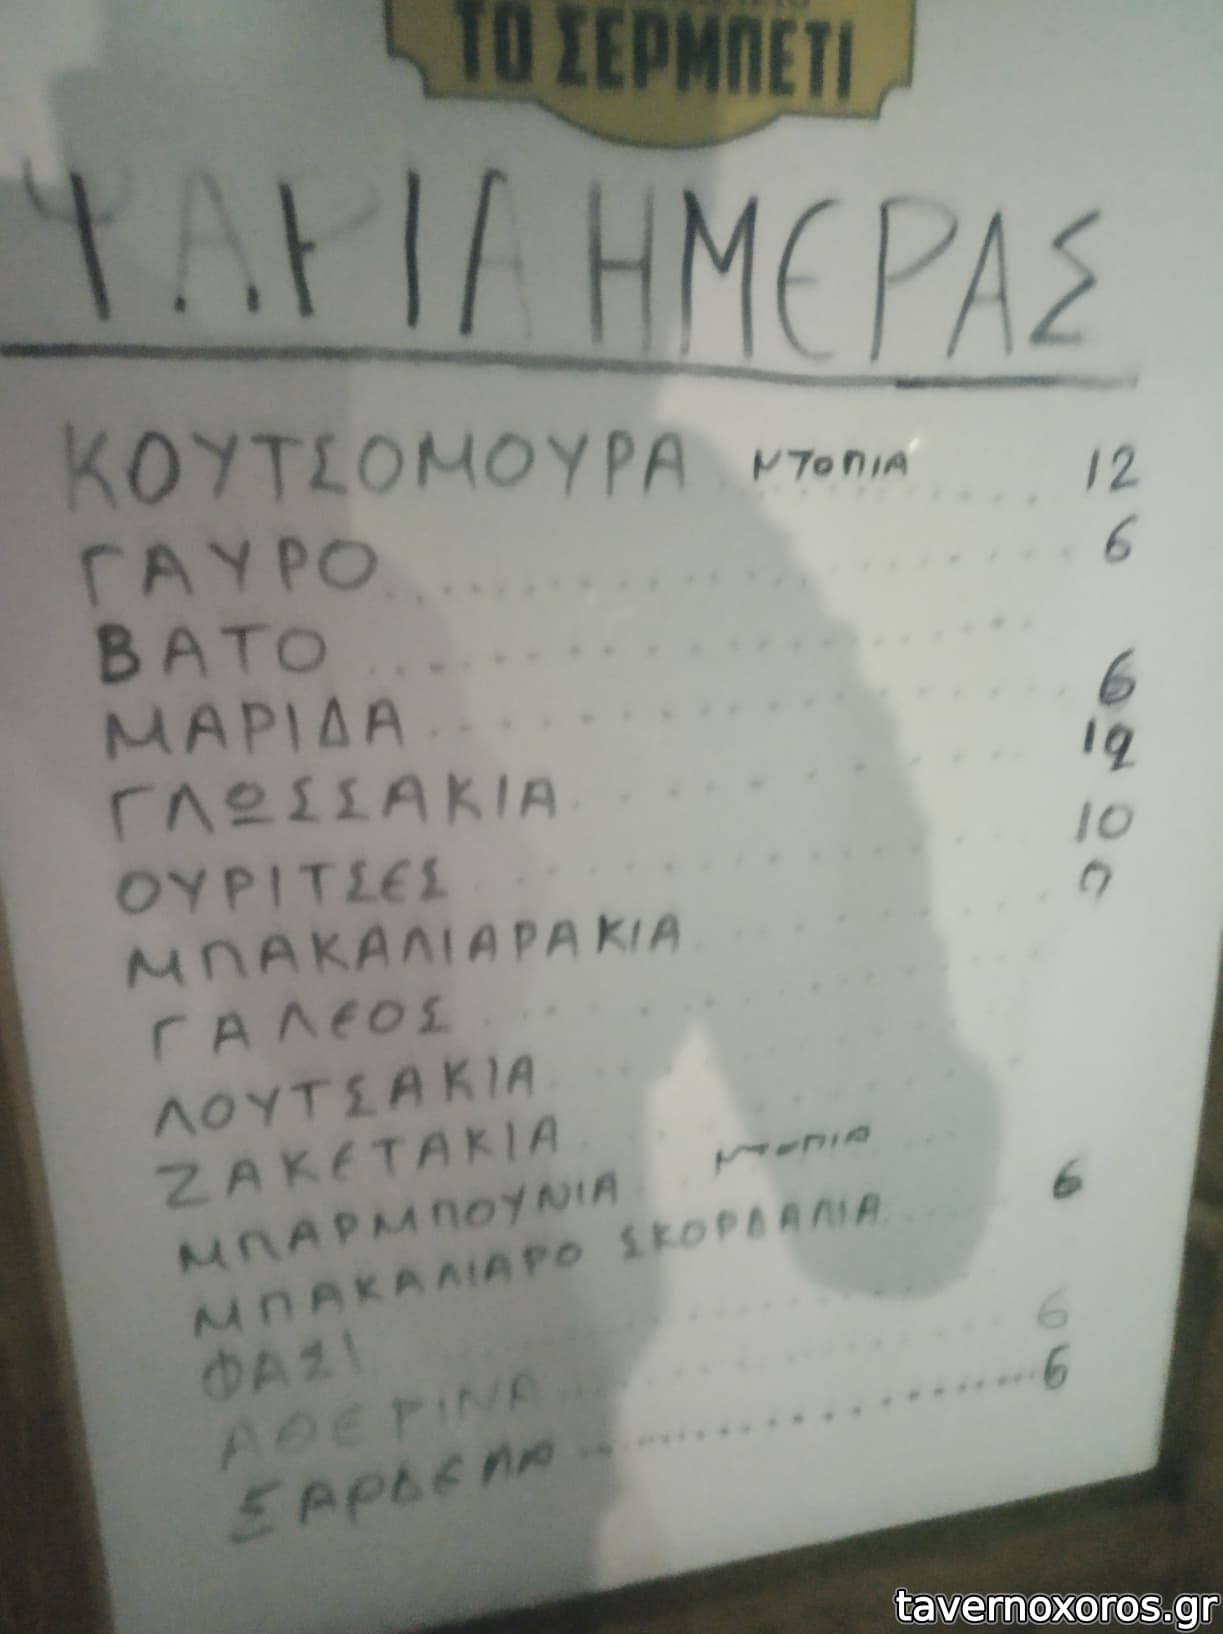 ΤΟ ΣΕΡΜΠΕΤΙ
ΨΑΡΙΑ ΗΜΕΡΑΣ
ΚΟΥΤΣΟΜΟΥΡΑ ΝΤΟΠΙΑ ........ 12
ΓΑΥΡΟ ........ 6
ΒΑΤΟ ........
ΜΑΡΙΔΑ ........ 6
ΓΛΩΣΣΑΚΙΑ ........ 12
ΟΥΡΙΤΣΕΣ ........ 10
ΜΠΑΚΑΛΙΑΡΑΚΙΑ ........ 7
ΓΑΛΕΟΣ ........
ΛΟΥΤΣΑΚΙΑ ........
ΖΑΚΕΤΑΚΙΑ ........
ΜΠΑΡΜΠΟΥΝΙΑ ... ΝΤΟΠΙΑ
ΜΠΑΚΑΛΙΑΡΟ ΣΚΟΡΔΑΛΙΑ ........ 6
ΦΑΣΙ ........
ΑΘΕΡΙΝΑ ........ 6
ΣΑΡΔΕΛΑ ........ 6
tavernoxoros.gr